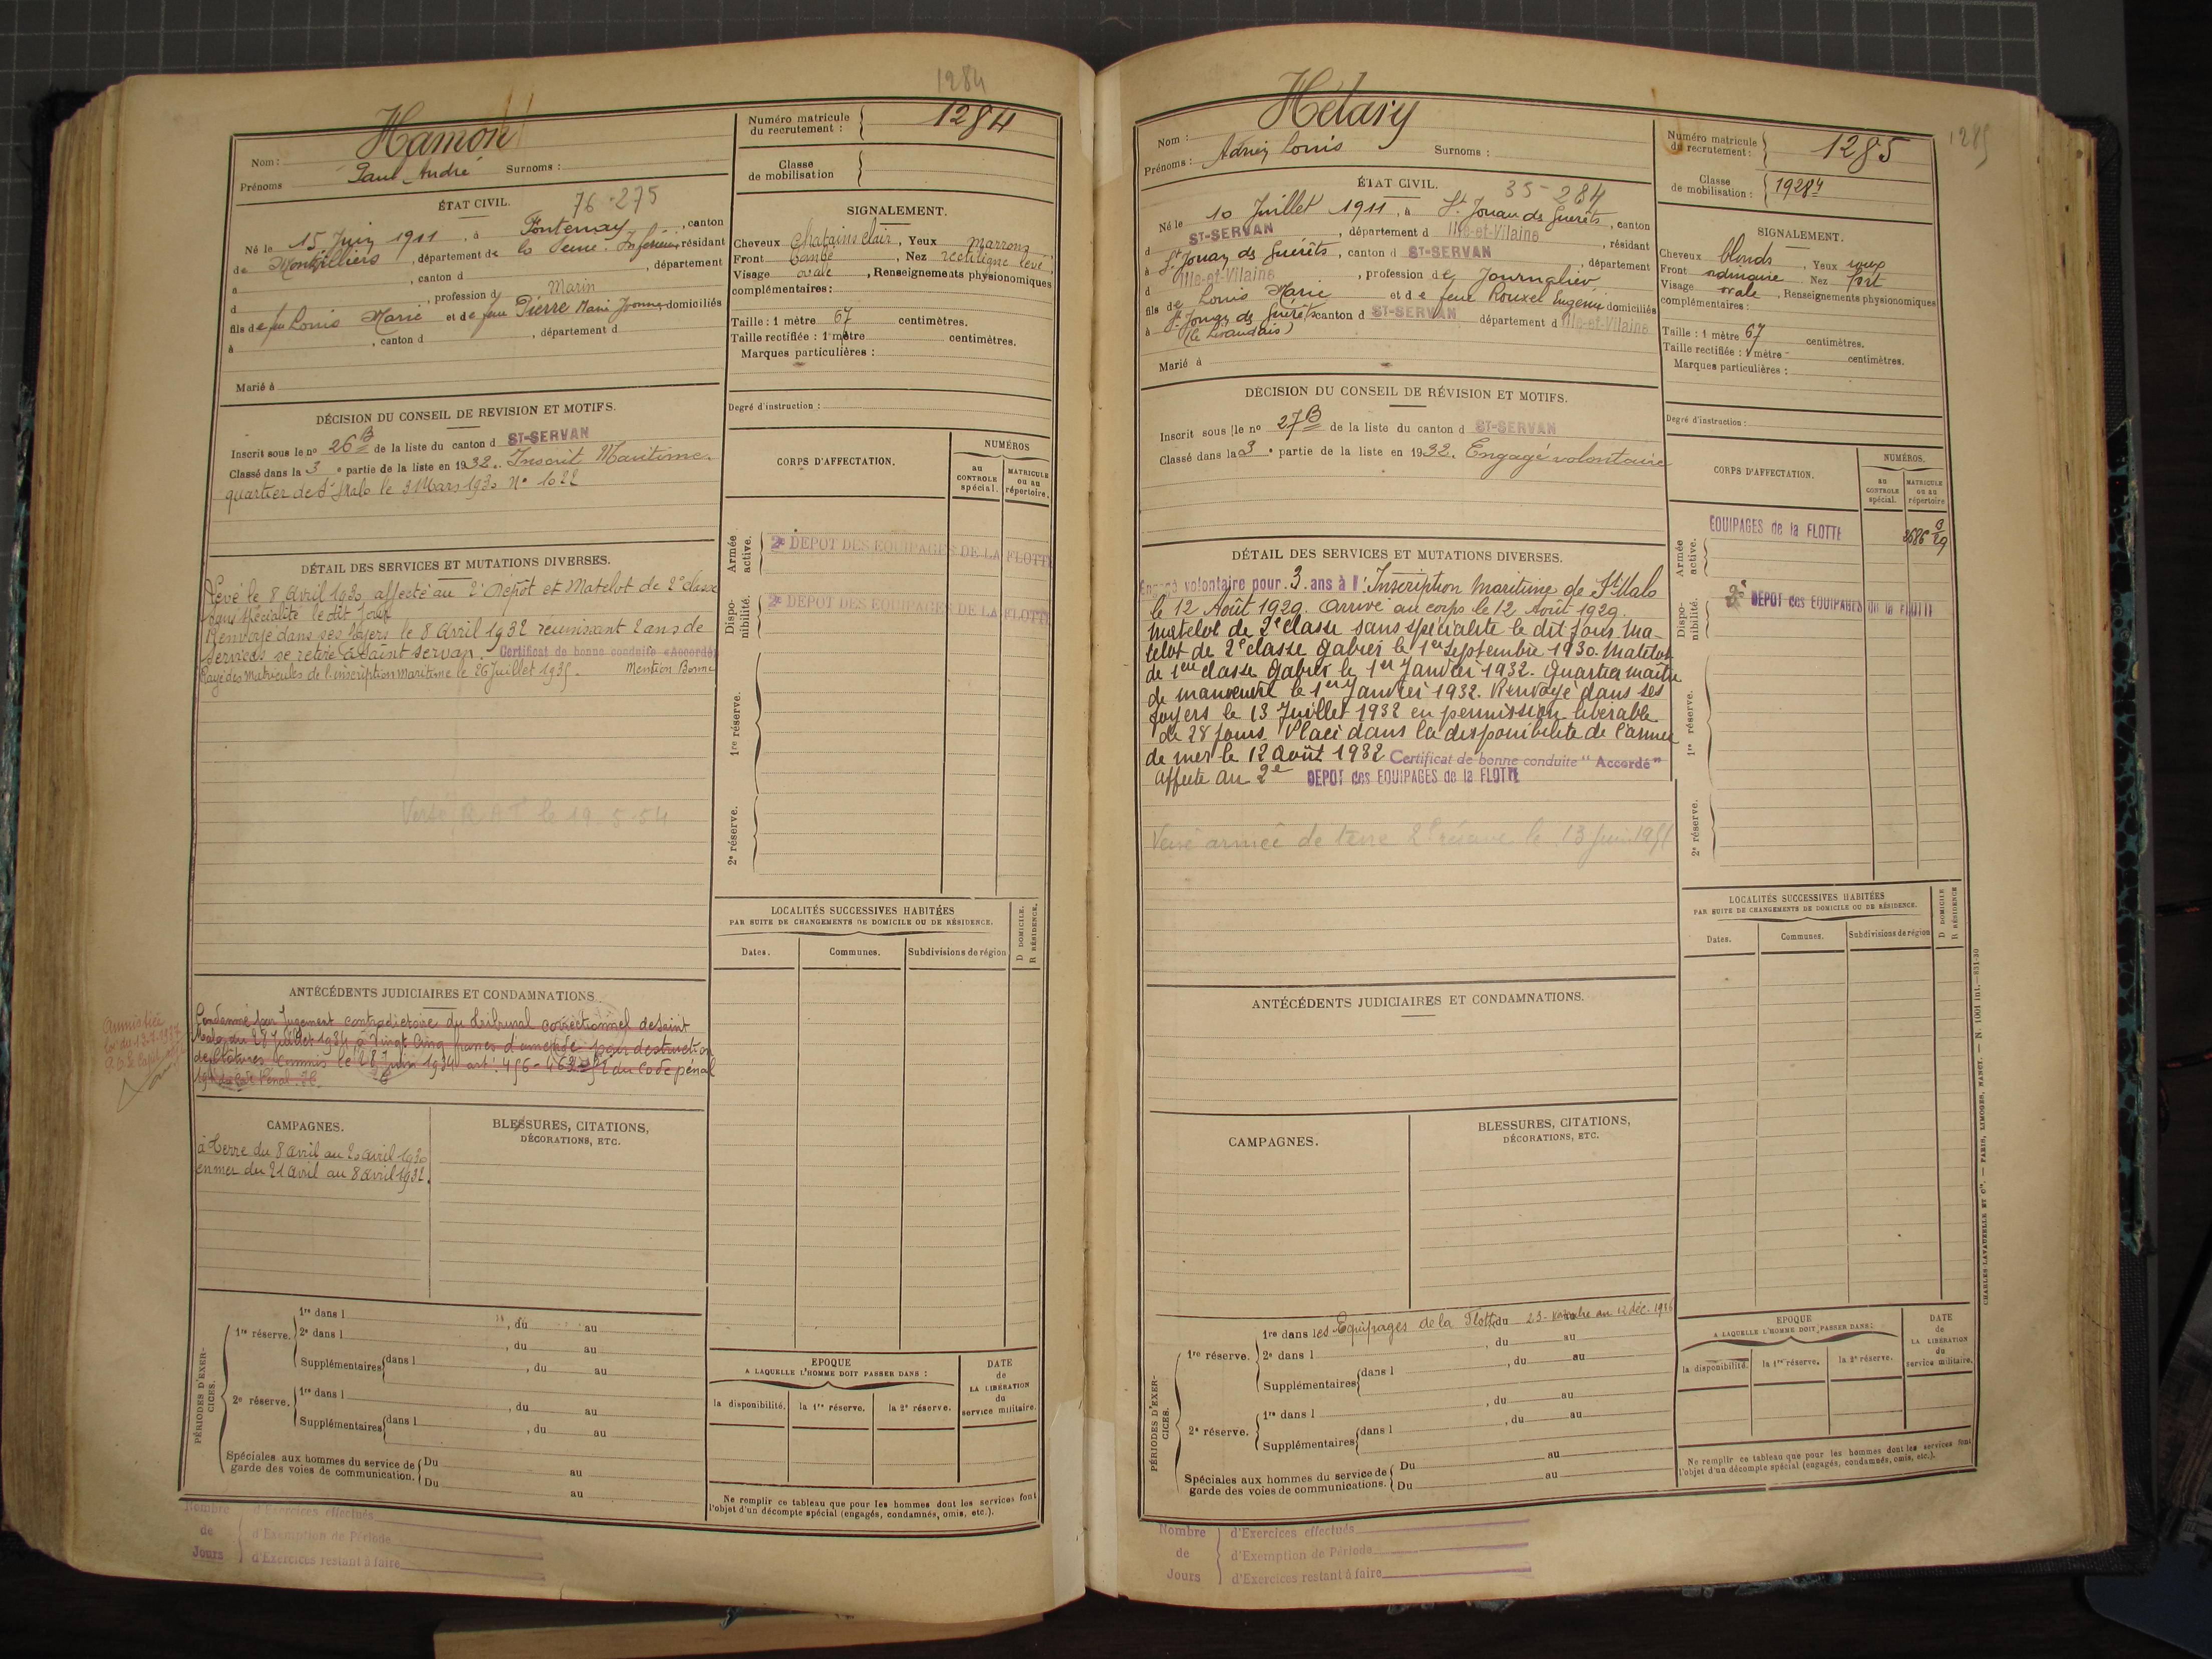 1284
Hamon
Nom :
Prénoms Paul André Surnoms :
Numéro matricule
du recrutement : 1284
Classe
de mobilisation
ÉTAT CIVIL.
76-275
Né le 15 Juin 1911, à Fontenay, canton
de Montivilliers, département de la Seine Inférieure, résidant
à , canton d , département
d , profession d Marin
fils de feu Louis Marie et de feue Pierre Marie Jeanne, domiciliés
à , canton d , département d
Marié à
SIGNALEMENT.
Cheveux chatains clair, Yeux marrons
Front bombé, Nez rectiligne levé
Visage ovale, Renseignements physionomiques
complémentaires :
Taille : 1 mètre 67 centimètres.
Taille rectifiée : 1 mètre centimètres.
Marques particulières :
Degré d'instruction :
DÉCISION DU CONSEIL DE REVISION ET MOTIFS.
Inscrit sous le no 26 B de la liste du canton d ST-SERVAN
Classé dans la 3e partie de la liste en 1932. Inscrit Maritime
quartier de St Malo le 3 Mars 1930 No 1022
DÉTAIL DES SERVICES ET MUTATIONS DIVERSES.
Levé le 8 Avril 1930 affecté au 2e Dépôt et Matelot de 2e classe
sans spécialité le dit jour
Renvoyé dans ses foyers le 8 Avril 1932 réunissant 2 ans de
services se retire à Saint Servan. Certificat de bonne conduite «Accordé»
Rayé des Matricules de l'inscription Maritime le 26 Juillet 1935. Mention Bonne
Versé R.A.T le 19-5-54
CORPS D'AFFECTATION.
NUMÉROS
au
CONTROLE
spécial.
MATRICULE
ou au
répertoire.
Armée
active.
2e DEPOT DES EQUIPAGES DE LA FLOTTE
Dispo-
nibilité.
2e DEPOT DES EQUIPAGES DE LA FLOTTE
1re réserve.
2e réserve.
LOCALITÉS SUCCESSIVES HABITÉES
PAR SUITE DE CHANGEMENTS DE DOMICILE OU DE RÉSIDENCE.
Dates.
Communes.
Subdivisions de région
D DOMICILE.
R RÉSIDENCE.
ANTÉCÉDENTS JUDICIAIRES ET CONDAMNATIONS
Condamné par Jugement contradictoire du tribunal correctionnel de Saint
Malo du 28 Juillet 1934 à Vingt cinq francs d'amende pour destruction
de clôtures commis le 28 Juin 1934 art. 456-463 du Code pénal
Amnistiée
loi du 12.7.1937
CAMPAGNES.
à terre du 8 avril au 20 avril 1930
en mer du 21 avril au 8 avril 1932.
BLESSURES, CITATIONS,
DÉCORATIONS, ETC.
PÉRIODES D'EXER-
CICES.
1re réserve.
1re dans l , du au
2e dans l , du au
Supplémentaires dans l , du au
2e réserve.
1re dans l , du au
Supplémentaires dans l , du au
Spéciales aux hommes du service de
garde des voies de communication.
Du au
Du au
EPOQUE
A LAQUELLE L'HOMME DOIT PASSER DANS :
la disponibilité.
la 1re réserve.
la 2e réserve.
DATE
de
LA LIBÉRATION
du
service militaire.
Ne remplir ce tableau que pour les hommes dont les services font
l'objet d'un décompte spécial (engagés, condamnés, omis, etc.).
Nombre
de
Jours
d'Exercices effectués
d'Exemption de Période
d'Exercices restant à faire
Hélary
Nom :
Prénoms : Adrien Louis Surnoms :
Numéro matricule
du recrutement : 1285
1285
Classe
de mobilisation : 1928
ÉTAT CIVIL.
35-284
Né le 10 Juillet 1911, à St Jouan des Guérêts, canton
d ST-SERVAN, département d Ille-et-Vilaine, résidant
à St Jouan des Guérêts, canton d ST-SERVAN, département
d Ille-et-Vilaine, profession de Journalier
fils de Louis Marie et de feue Rouxel Eugénie domiciliés
à St Jouan des Guérêts canton d ST-SERVAN département d Ille-et-Vilaine
Marié à
SIGNALEMENT.
Cheveux blonds, Yeux roux
Front ordinaire Nez fort
Visage ovale, Renseignements physionomiques
complémentaires :
Taille : 1 mètre 67 centimètres.
Taille rectifiée : 1 mètre centimètres.
Marques particulières :
Degré d'instruction :
DÉCISION DU CONSEIL DE RÉVISION ET MOTIFS.
Inscrit sous le no 27 B de la liste du canton d ST-SERVAN
Classé dans la 3e partie de la liste en 1932. Engagé volontaire
DÉTAIL DES SERVICES ET MUTATIONS DIVERSES.
Engagé volontaire pour 3 ans à l'Inscription Maritime de St Malo
le 12 Août 1929. Arrivé au corps le 12 Août 1929.
Matelot de 2e classe sans spécialité le dit jour. Ma-
telot de 2e classe gabier le 1er septembre 1930. Matelot
de 1ere classe gabier le 1er Janvier 1932. Quartier maître
de manoeuvre le 1er Janvier 1932. Renvoyé dans ses
foyers le 13 Juillet 1932 en permission libérable
de 28 jours. Placé dans la disponibilité de l'armée
de mer le 12 Août 1932 Certificat de bonne conduite "Accordé"
Affecté au 2e DEPOT des EQUIPAGES de la FLOTTE
Versé armée de terre 2e réserve le 13 Juin 1951
CORPS D'AFFECTATION.
NUMÉROS.
au
CONTROLE
spécial.
MATRICULE
ou au
répertoire
Armée
active.
EQUIPAGES de la FLOTTE
2686 B 29
Dispo-
nibilité.
2e DEPOT des EQUIPAGES de la FLOTTE
1re réserve.
2e réserve.
LOCALITÉS SUCCESSIVES HABITÉES
PAR SUITE DE CHANGEMENTS DE DOMICILE OU DE RÉSIDENCE.
Dates.
Communes.
Subdivisions de région
D DOMICILE
R RÉSIDENCE
ANTÉCÉDENTS JUDICIAIRES ET CONDAMNATIONS.
CAMPAGNES.
BLESSURES, CITATIONS,
DÉCORATIONS, ETC.
PÉRIODES D'EXER-
CICES.
1re réserve.
1re dans les Equipages de la Flotte, du 23 Novembre au 12 déc. 1936
2e dans l , du au
Supplémentaires dans l , du au
2e réserve.
1re dans l , du au
Supplémentaires dans l , du au
Spéciales aux hommes du service de
garde des voies de communications.
Du au
Du au
EPOQUE
A LAQUELLE L'HOMME DOIT PASSER DANS :
la disponibilité.
la 1re réserve.
la 2e réserve.
DATE
de
LA LIBÉRATION
du
service militaire.
Ne remplir ce tableau que pour les hommes dont les services font
l'objet d'un décompte spécial (engagés, condamnés, omis, etc.).
CHARLES-LAVAUZELLE ET Cie. — PARIS, LIMOGES, NANCY. — N. 1001 int.—831-30
Nombre
de
Jours
d'Exercices effectués
d'Exemption de Période
d'Exercices restant à faire